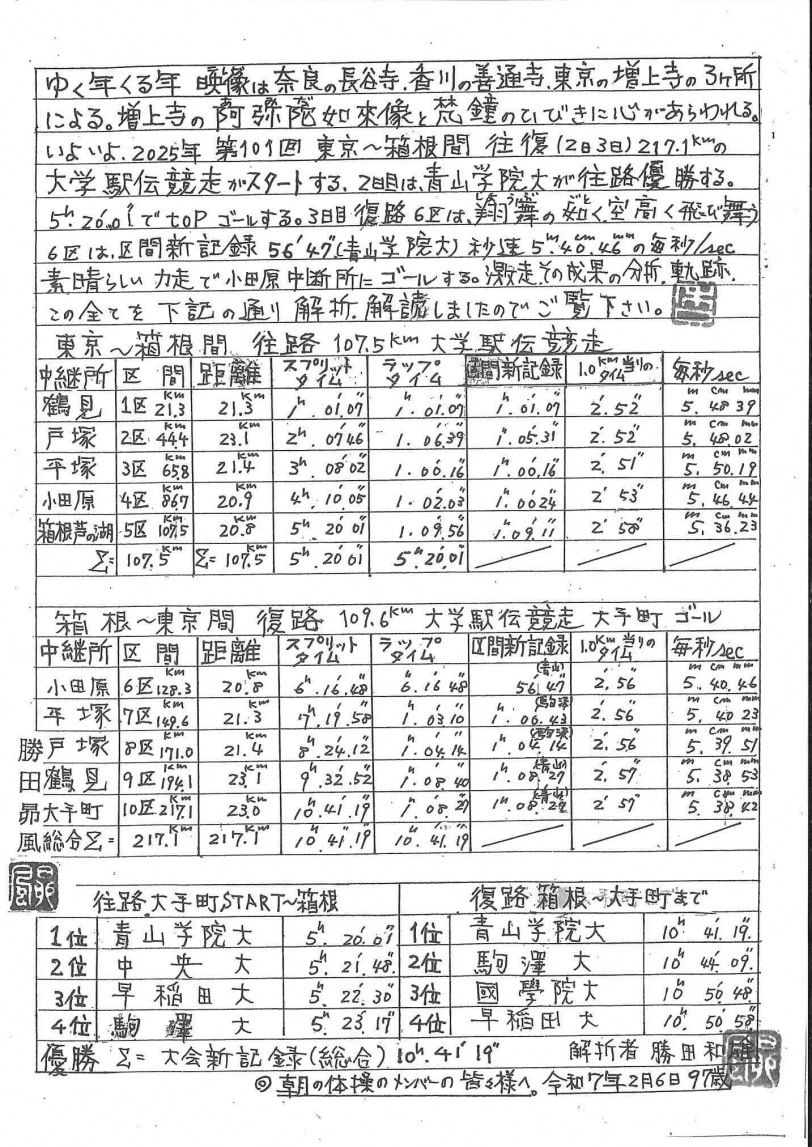 ゆく年くる年 映像は奈良の長谷寺.香川の善通寺.東京の増上寺の3ヶ所
による。増上寺の阿弥陀如来像と梵鐘のひびきに心があらわれる。
いよいよ.2025年 第101回 東京〜箱根間 往復(2日3日)217.1Kmの
大学駅伝競走がスタートする.2日目は、青山学院大が往路優勝する。
5h.20'.01"でtopゴールする。3日目復路6区は、翔舞の如く空高く飛び舞う
6区は、区間新記録 56'47"(青山学院大)秒速 5m.40cm.46mmの毎秒/sec
素晴らしい力走で小田原中断所にゴールする。激走.その成果の分析.軌跡.
この全てを下記の通り解析.解読しましたのでご覧下さい。
東京〜箱根間 往路 107.5Km 大学駅伝競走
中継所 区間 距離 スプリットタイム ラップタイム 区間新記録 1.0Km当りのタイム 毎秒/sec
鶴見 1区 21.3Km 21.3Km 1h.01'.07" 1.01'.07" 1h.01'.07" 2'.52" 5m.48cm39mm
戸塚 2区 44.4Km 23.1Km 2h.07'46" 1.06'.39" 1h.05'.31" 2'.52" 5m.48cm.02mm
平塚 3区 65.8Km 21.4Km 3h.08'02" 1.00'.16" 1h.00'.16" 2'.51" 5m.50cm.19mm
小田原 4区 86.7Km 20.9Km 4h.10'05" 1.02'.03" 1h.00'24" 2'53" 5m.46cm.44mm
箱根芦の湖 5区 107.5Km 20.8Km 5h.20'01" 1.09'.56" 1h.09'.11" 2'58" 5m.36cm.23mm
Σ= 107.5Km Σ=107.5Km 5h.20'01" 5h.20'.01"
箱根〜東京間 復路 109.6Km 大学駅伝競走 大手町ゴール
中継所 区間 距離 スプリットタイム ラップタイム 区間新記録 1.0Km当りのタイム 毎秒/sec
小田原 6区 128.3Km 20.8Km 6h.16'.48" 6.16'48" 56'.47"(青山) 2'.56" 5m.40cm.46mm
平塚 7区 149.6Km 21.3Km 7h.19'.58" 1.03'10" 1h.06'.43"(駒澤) 2'.56" 5m.40cm23mm
勝 戸塚 8区 171.0Km 21.4Km 8h.24'.12" 1.04'.14" 1h04'.14"(駒澤) 2'.56" 5m.39cm.51mm
田 鶴見 9区 194.1Km 23.1Km 9h.32'.52" 1.08'.40" 1h08'.27"(青山) 2'.57" 5m.38cm.53mm
昴 大手町 10区 217.1Km 23.0Km 10h.41'.19" 1.08'.27" 1h08'.27"(青山) 2'57" 5m.38cm.42mm
風 総合Σ= 217.1Km 217.1Km 10h.41'.19" 10h.41'.19"
往路大手町START〜箱根 復路 箱根〜大手町まで
1位 青山学院大 5h.20'.01" 1位 青山学院大 10h 41'.19"
2位 中央大 5h.21'.48" 2位 駒澤大 10h 44'.09"
3位 早稲田大 5h.22'.30" 3位 國學院大 10h 50'48"
4位 駒澤大 5h.23'.17" 4位 早稲田大 10h.50'58"
優勝 Σ= 大会新記録(総合)10h.41'19" 解析者 勝田和雄
◎朝の体操のメンバーの皆々様へ。令和7年2月6日97歳